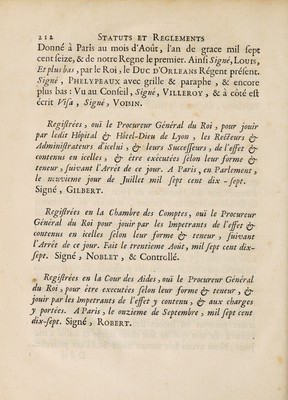 212 STATUTS ET REGLEMENTS
Donné à Paris au mois d'Août, l'an de grace mil sept
cent seize, & de notre Regne le premier. Ainsi Signé, LOUIS,
Et plus bas, par le Roi, le DUC D'ORLEANS Régent présent.
Signé, PHELYPEAUX avec grille & paraphe, & encore
plus bas: Vu au Conseil, Signé, VILLEROY, & à côté est
écrit Visa, Signé, VOISIN.
Registrées, oui le Procureur Général du Roi, pour jouir
par ledit Hôpital & Hôtel-Dieu de Lyon, les Recteurs &
Administrateurs d'icelui, & leurs Successeurs, de l'effet &
contenus en icelles, & être executées selon leur forme &
teneur, suivant l'Arrêt de ce jour. A Paris, en Parlement,
le neuvieme jour de Juillet mil sept cent dix-sept.
Signé, GILBERT.
Registrées en la Chambre des Comptes, oui le Procureur
Général du Roi pour jouir par les Impetrants de l'effet &
contenus en icelles selon leur forme & teneur, suivant
l'Arrêt de ce jour. Fait le trentieme Août, mil sept cent dix-
sept. Signé, NOBLET, & Controllé.
Registrées en la Cour des Aides, oui le Procureur Général
du Roi, pour être executées selon leur forme & teneur, &
jouir par les Impetrants de l'effet y contenu, & aux charges
y portées. A Paris, le onzieme de Septembre, mil sept cent
dix-sept. Signé, ROBERT.